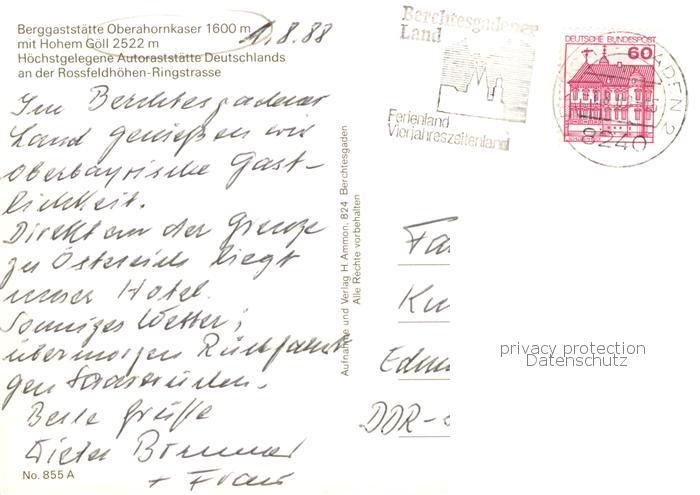 Berggaststätte Oberahornkaser 1600 m
mit Hohem Göll 2522 m
Höchstgelegene Autoraststätte Deutschlands
an der Rossfeldhöhen-Ringstrasse
1.8.88
Im Berchtesgadener
Land genießen wir
Oberbayrische Gast-
lichkeit.
Direkt an der Grenze
zu Östereich liegt
unser Hotel.
Sonniges Wetter;
übermorgen Rückfahrt
gen Saarbrücken.
Beste Grüße
Dieter
+ Frau
No. 855 A
Aufnahme und Verlag H. Ammon, 824 Berchtesgaden
Alle Rechte vorbehalten
Berchtesgadener
Land
Ferienland
Vierjahreszeitenland
DEUTSCHE BUNDESPOST
60
GADEN 2
8240
Fa
Ku
Edm
DDR-
privacy protection
Datenschutz